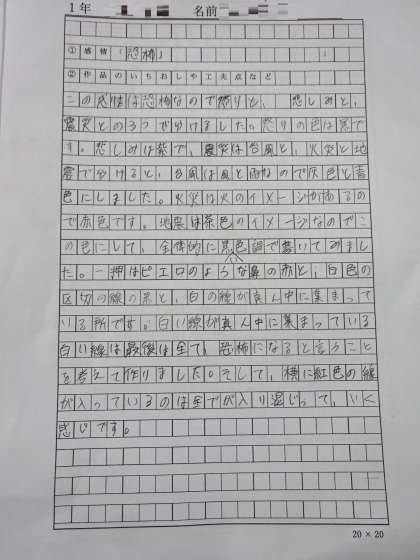 1年 名前
① 感情「恐怖」
② 作品のいちおしや工夫点など
この感情は恐怖なので怒りと、悲しみと、
震災との3つで分けました。怒りの色は黒で
す。悲しみは紫で、震災は台風と、火災と地
震で分けると、台風は風と雨なので灰色と青
色にしました。火災は火のイメージがあるの
で赤色です。地震は茶色のイメージなのでこ
の色にして、全体的に黒色調で書いてみまし
た。一押はピエロのような鼻の赤と、白色の
区切の線の黒と、白の線が真ん中に集まって
いる所です。白い線が真ん中に集まっている
白い線は最後は全て、恐怖になると言うこと
を考えて作りました。そして、横に紅色の線
が入っているのは全てが入り混じって、いく
感じです。
20×20